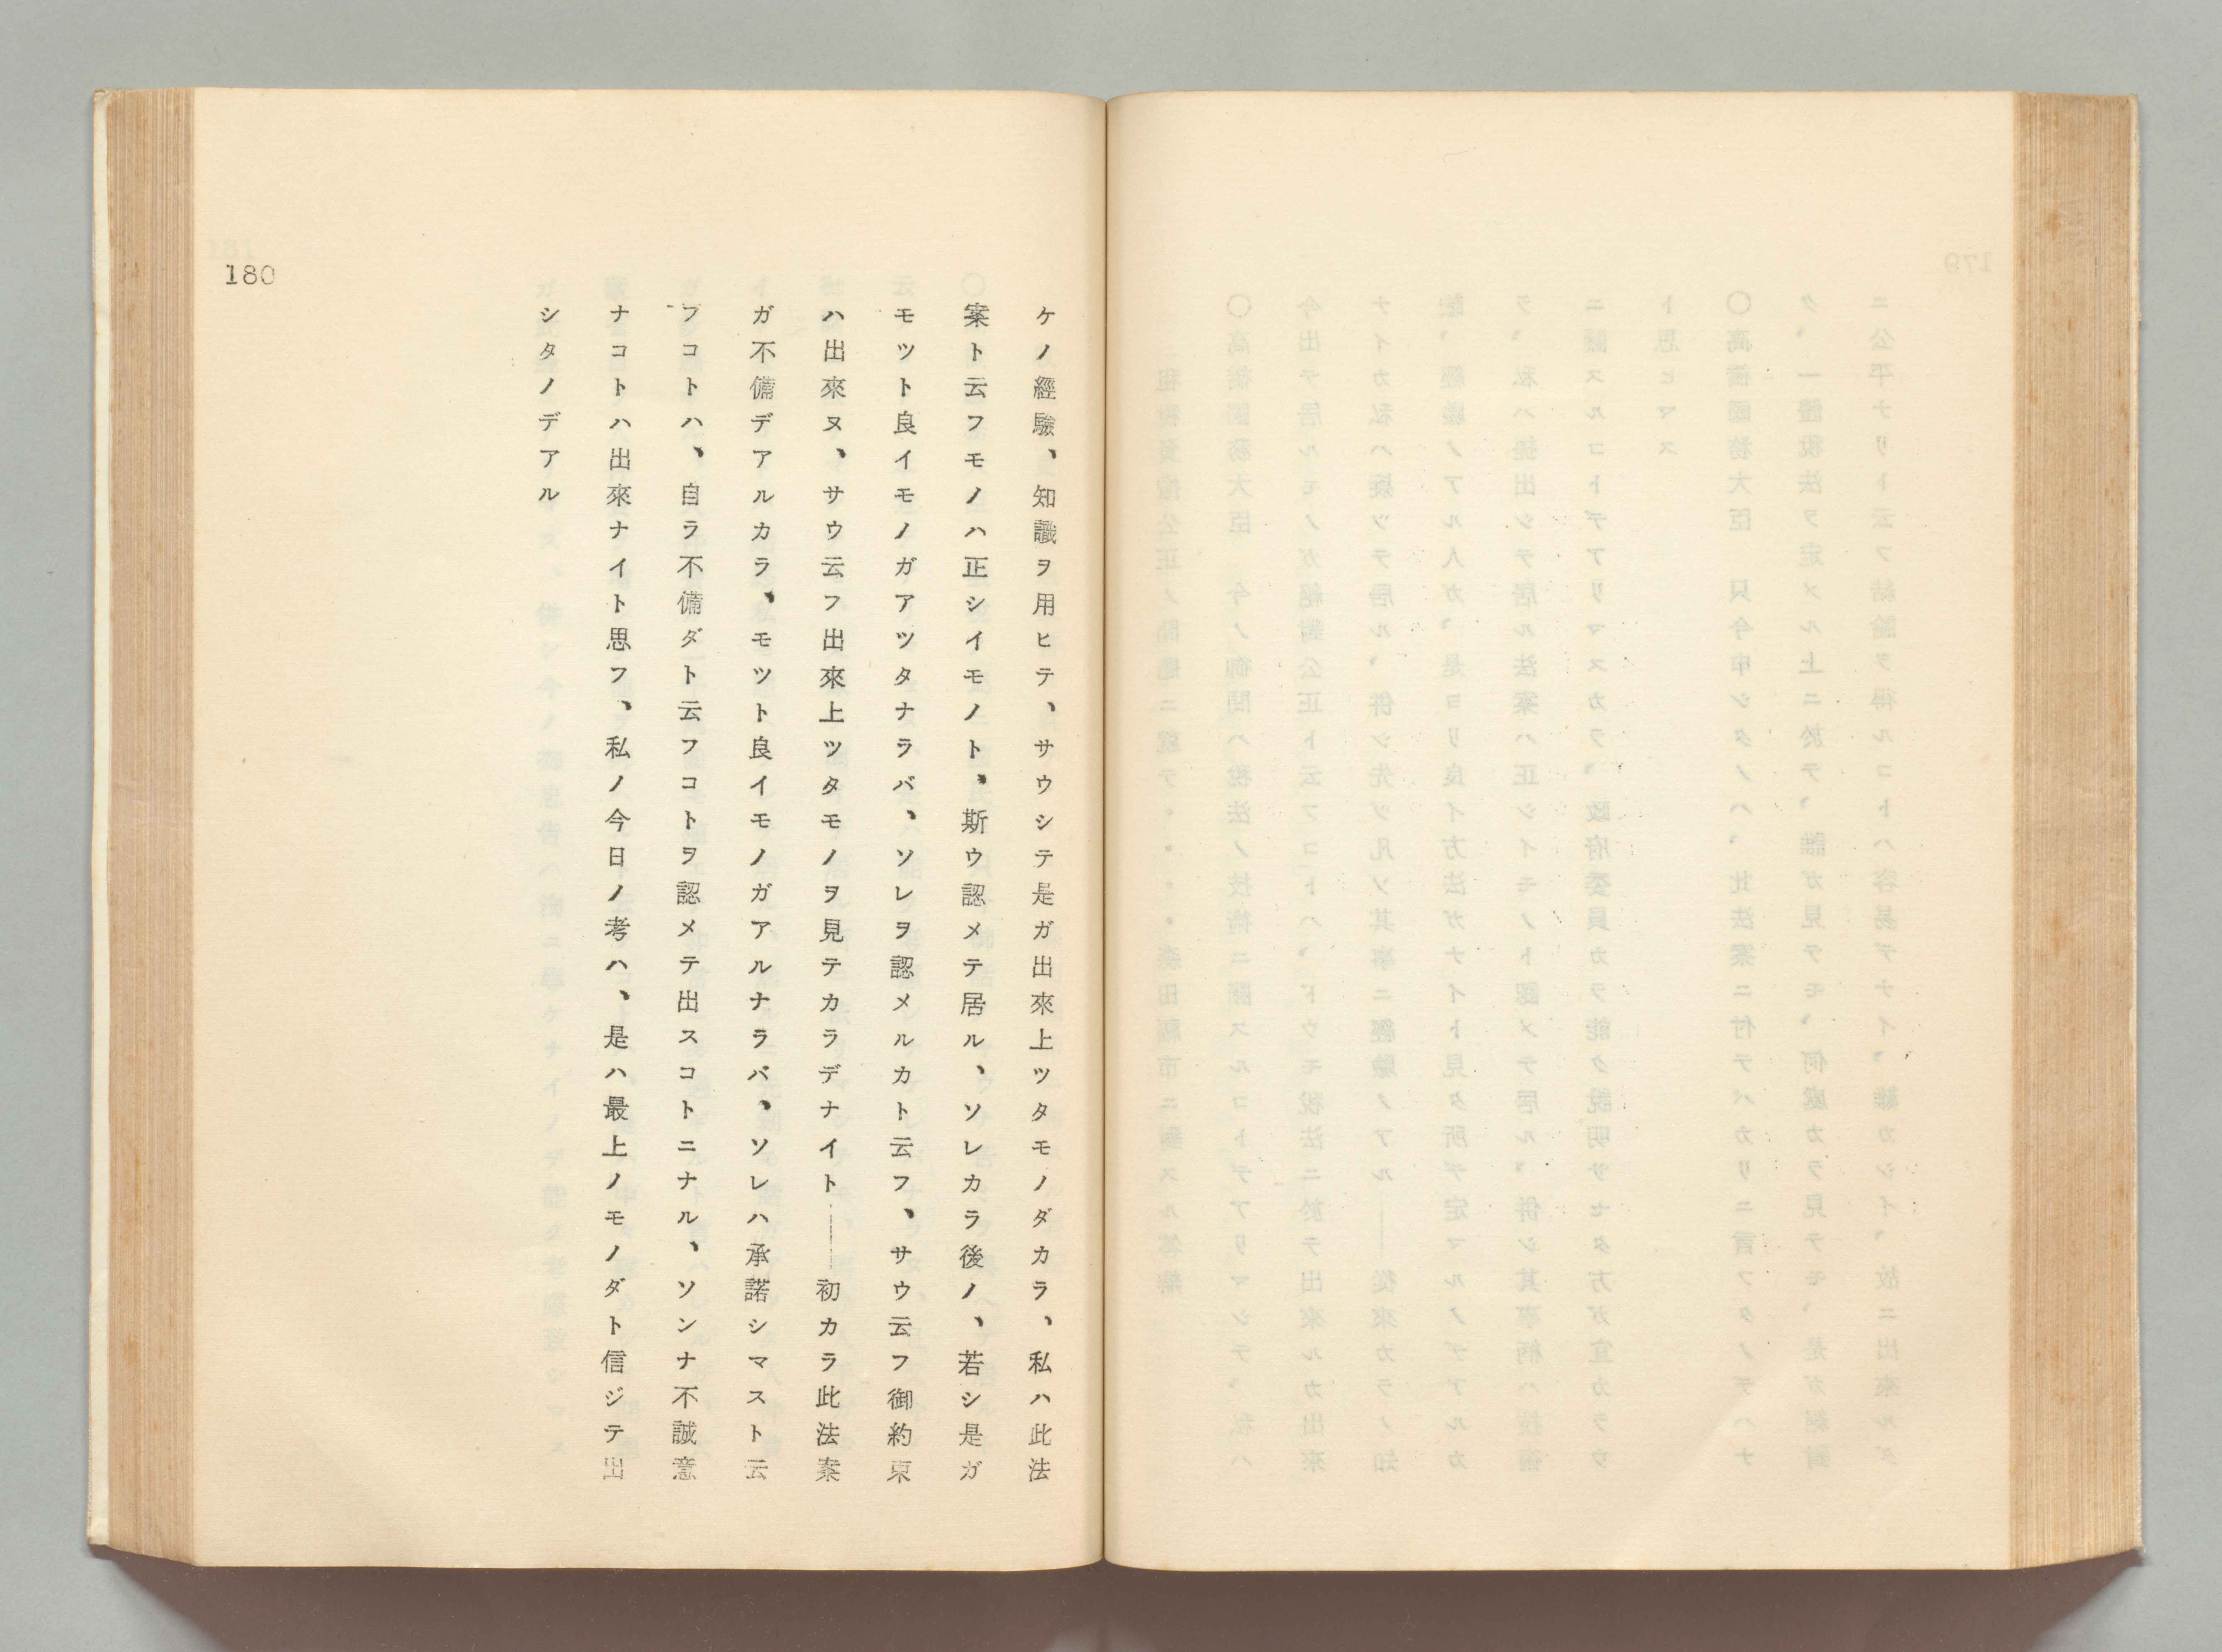 180
ケノ經驗、知識ヲ用ヒテ、サウシテ是ガ出來上ツタモノダカラ、私ハ此法
案ト云フモノハ正シイモノト、斯ウ認メテ居ル、ソレカラ後ノ、若シ是ガ
モツト良イモノガアツタナラバ、ソレヲ認メルカト云フ、サウ云フ御約束
ハ出來ヌ、サウ云フ出來上ツタモノヲ見テカラデナイト――初カラ此法案
ガ不備デアルカラ、モツト良イモノガアルナラバ、ソレハ承諾シマスト云
フコトハ、自ラ不備ダト云フコトヲ認メテ出スコトニナル、ソンナ不誠意
ナコトハ出來ナイト思フ、私ノ今日ノ考ハ、是ハ最上ノモノダト信ジテ出
シタノデアル